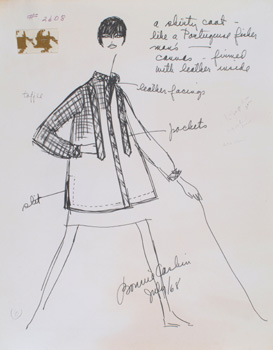 # 2608
a skirty coat -
like a Portuguese fisher
man's
canvas - firmed
with leather inside
leather facings
pockets
slit
Bonnie Cashin
July '68